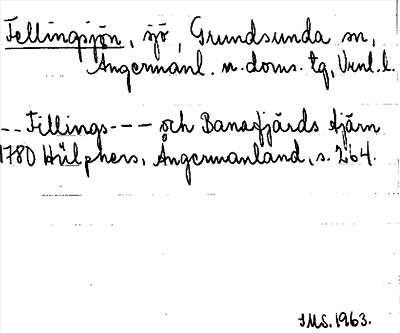 Tellingsjön, sjö, Grundsunda sn,
Ångermanl. n. doms. tg, Vrnl. l.
-- Fillings --- och Banafjärds tjärn
1780 Hülphers, Ångermanland, s. 264.
IMS. 1963.